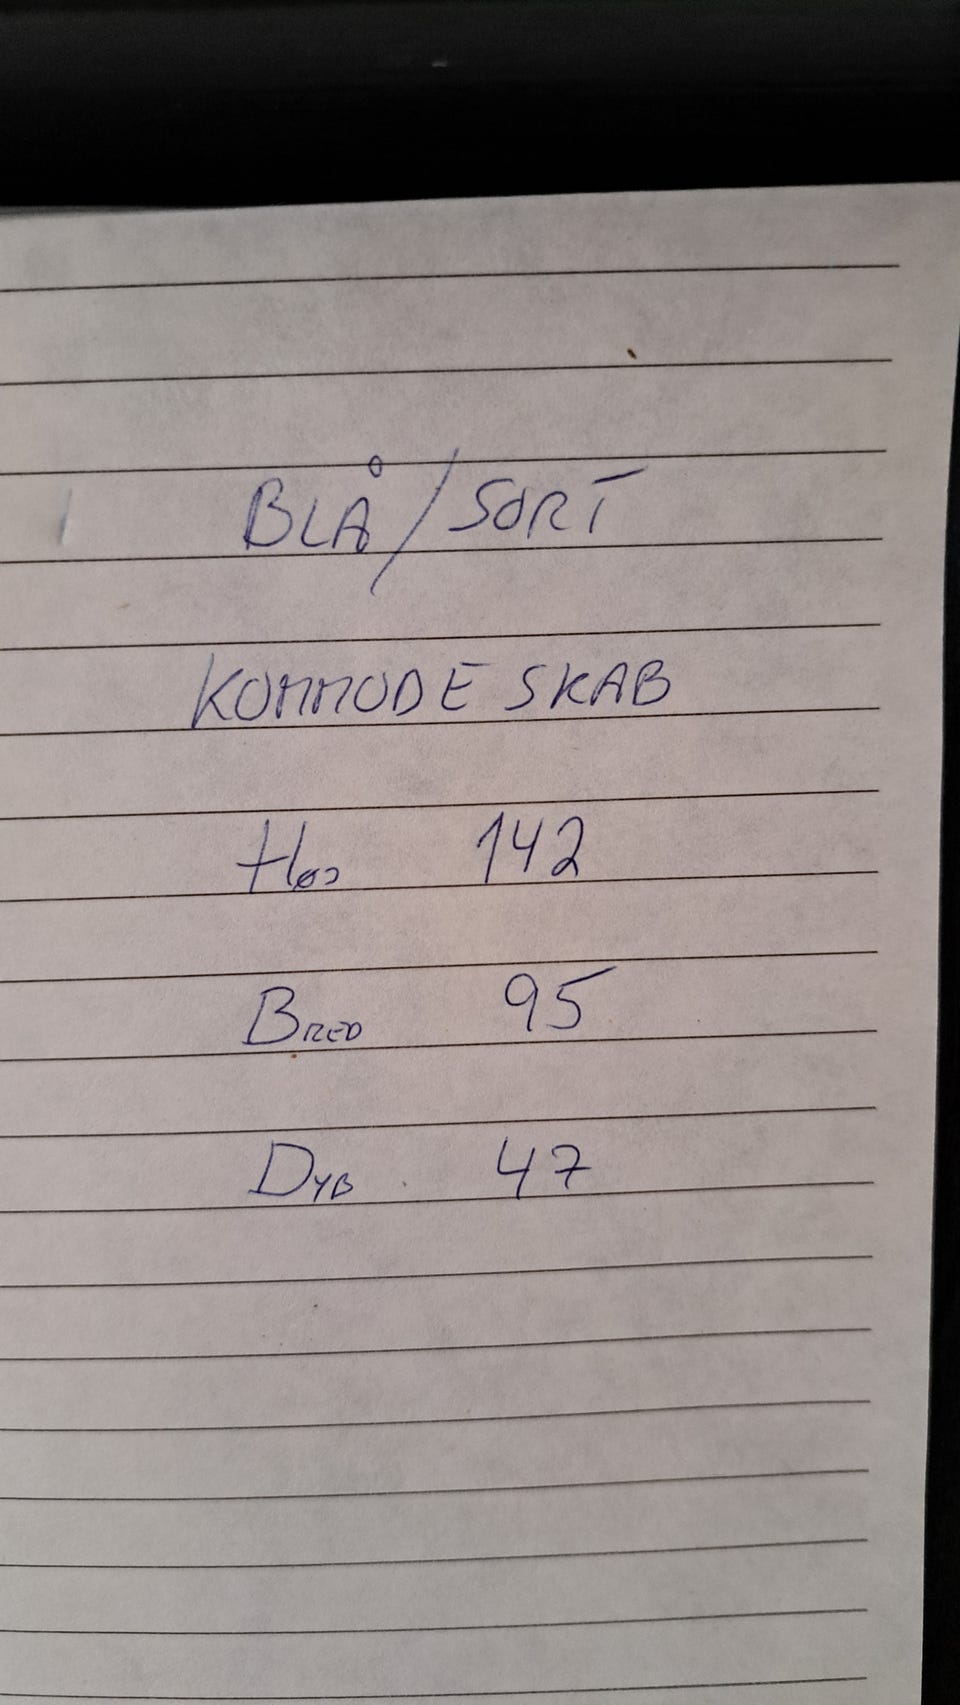 BLÅ/SORT
KOMMODE SKAB
Høj 142
Bred 95
Dyb 47